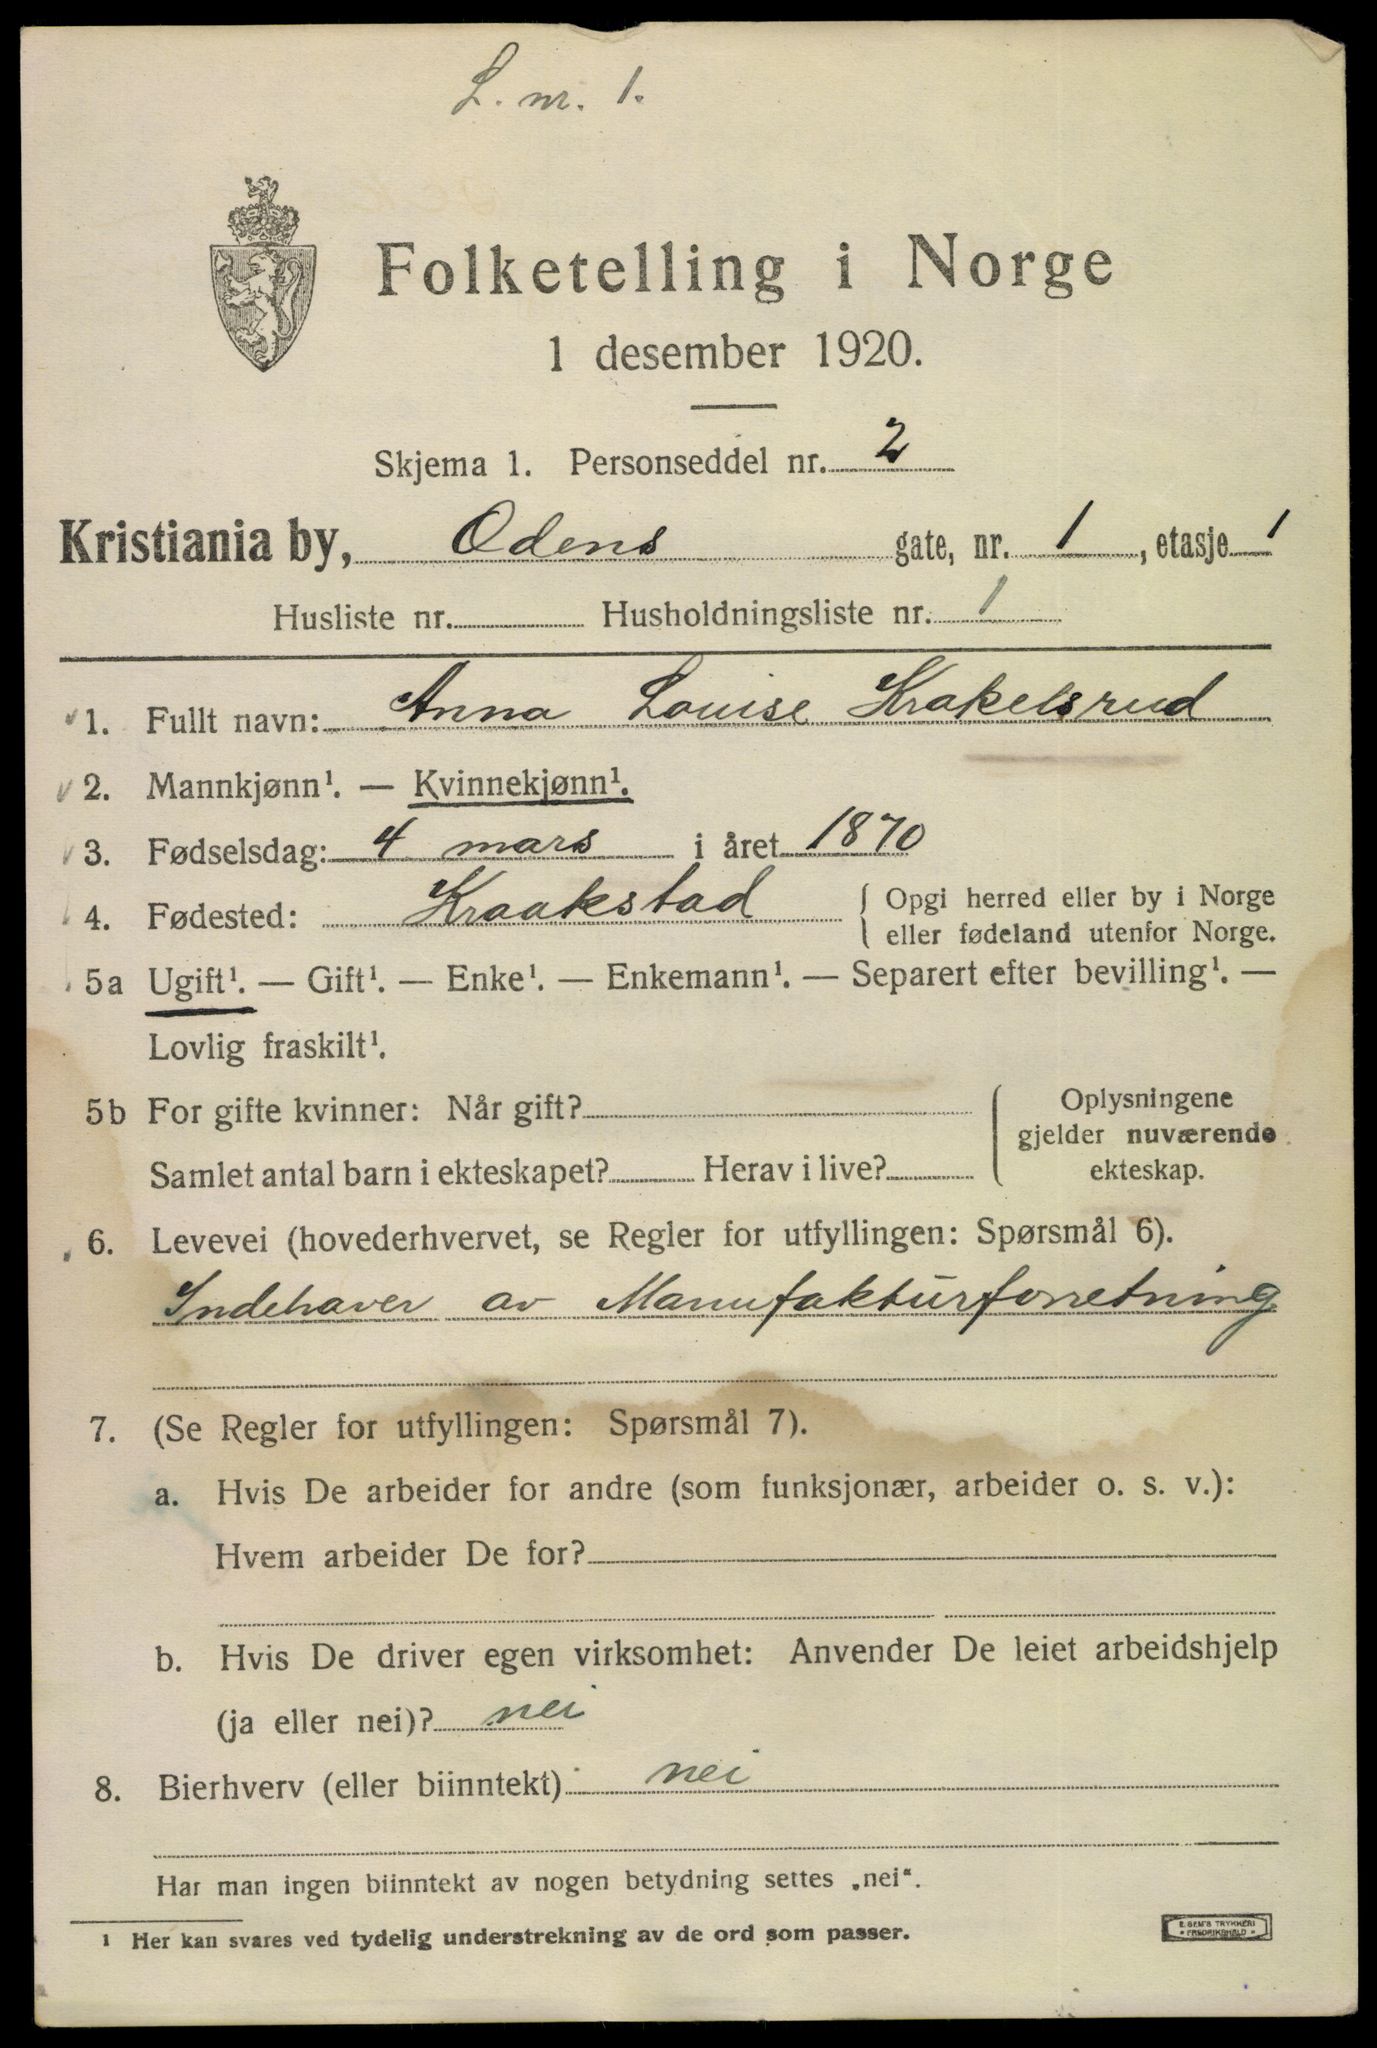 L. nr. 1.
Folketelling i Norge
1 desember 1920.
Skjema 1. Personseddel nr. 2
Kristiania by, Odens gate, nr. 1, etasje 1
Husliste nr. Husholdningsliste nr. 1
1. Fullt navn: Anna Louise Krakelsrud
2. Mannkjønn¹. — Kvinnekjønn¹.
3. Fødselsdag: 4 mars i året 1870
4. Fødested: Kraakstad { Opgi herred eller by i Norge
eller fødeland utenfor Norge.
5a Ugift¹. — Gift¹. — Enke¹. — Enkemann¹. — Separert efter bevilling¹. —
Lovlig fraskilt¹.
5b For gifte kvinner: Når gift? { Oplysningene
gjelder nuværende
Samlet antal barn i ekteskapet? Herav i live? ekteskap.
6. Levevei (hovederhvervet, se Regler for utfyllingen: Spørsmål 6).
Indehaver av Manufakturforretning
7. (Se Regler for utfyllingen: Spørsmål 7).
a. Hvis De arbeider for andre (som funksjonær, arbeider o. s. v.):
Hvem arbeider De for?
b. Hvis De driver egen virksomhet: Anvender De leiet arbeidshjelp
(ja eller nei)? nei
8. Bierhverv (eller biinntekt) nei
Har man ingen biinntekt av nogen betydning settes „nei“.
¹ Her kan svares ved tydelig understrekning av de ord som passer.
E. SEM'S TRYKKERI
• FREDRIKSHALD •